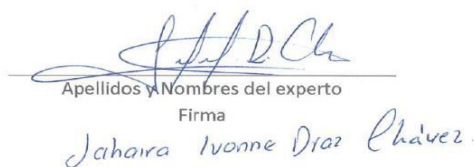 Apellidos y Nombres del experto
Firma
Jahaira Ivonne Diaz Chávez